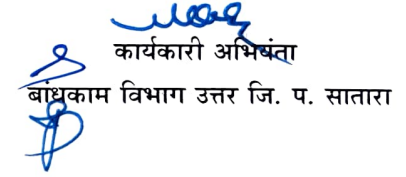 कार्यकारी अभियंता
बांधकाम विभाग उत्तर जि. प. सातारा